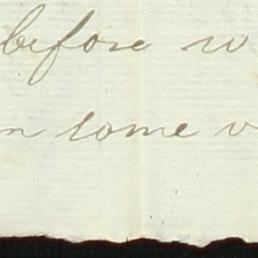 before w
n some v